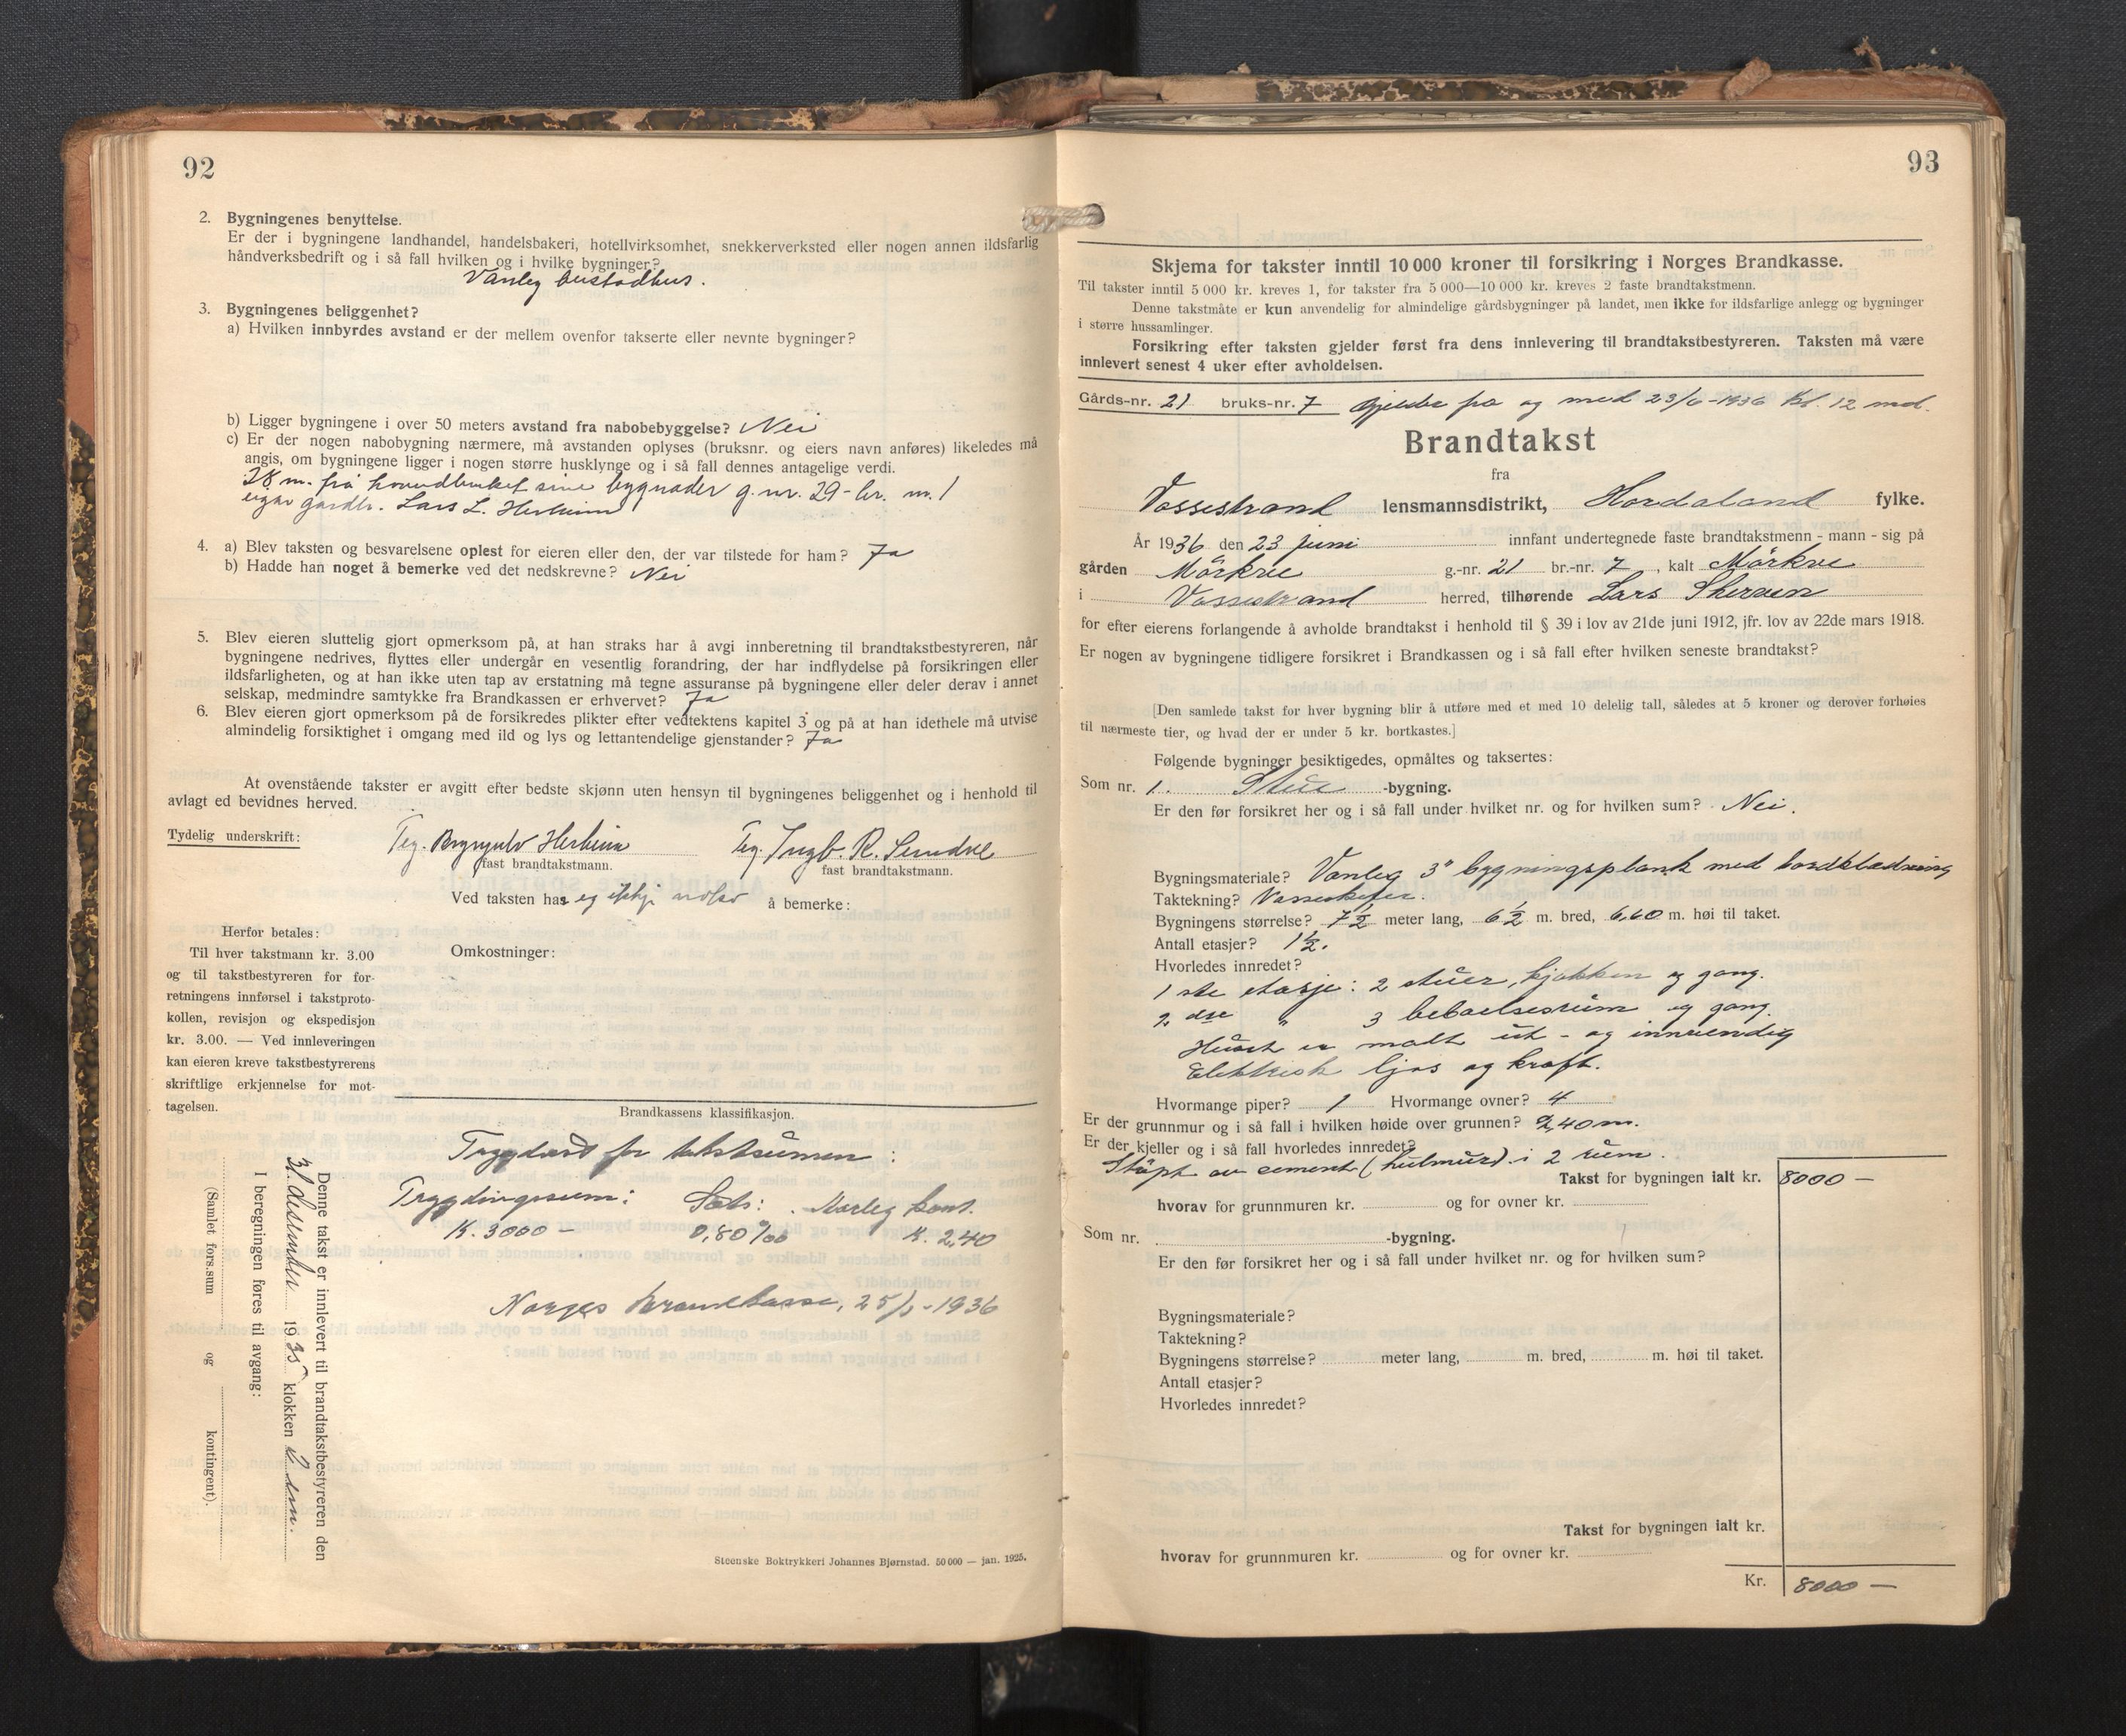 92
2. Bygningenes benyttelse.
Er der i bygningene landhandel, handelsbakeri, hotellvirksomhet, snekkerverksted eller nogen annen ildsfarlig
håndverksbedrift og i så fall hvilken og i hvilke bygninger?
Vanleg bustadhus.
3. Bygningenes beliggenhet?
a) Hvilken innbyrdes avstand er der mellem ovenfor takserte eller nevnte bygninger?
b) Ligger bygningene i over 50 meters avstand fra nabobebyggelse? Nei
c) Er der nogen nabobygning nærmere, må avstanden oplyses (bruksnr. og eiers navn anføres) likeledes må
angis, om bygningene ligger i nogen større husklynge og i så fall dennes antagelige verdi.
38 m. frå hovudbruket sine bygnader g.nr. 29 - br. nr. 1
eigar gardbr. Lars L. Herheim
4. a) Blev taksten og besvarelsene oplest for eieren eller den, der var tilstede for ham? Ja
b) Hadde han noget å bemerke ved det nedskrevne? Nei
5. Blev eieren sluttelig gjort opmerksom på, at han straks har å avgi innberetning til brandtakstbestyreren, når
bygningene nedrives, flyttes eller undergår en vesentlig forandring, der har indflydelse på forsikringen eller
ildsfarligheten, og at han ikke uten tap av erstatning må tegne assuranse på bygningene eller deler derav i annet
selskap, medmindre samtykke fra Brandkassen er erhvervet? Ja
6. Blev eieren gjort opmerksom på de forsikredes plikter efter vedtektens kapitel 3 og på at han idethele må utvise
almindelig forsiktighet i omgang med ild og lys og lettantendelige gjenstander? Ja
At ovenstående takster er avgitt efter bedste skjønn uten hensyn til bygningenes beliggenhet og i henhold til
avlagt ed bevidnes herved.
Tydelig underskrift: Teg. Brynjulv Herheim Teg. Ingb. R. Sundve
fast brandtakstmann. fast brandtakstmann.
Ved taksten har eg ikkje noko å bemerke:
Herfor betales:
Til hver takstmann kr. 3.00
og til takstbestyreren for for-
retningens innførsel i takstproto-
kollen, revisjon og ekspedisjon
kr. 3.00. — Ved innleveringen
kan eieren kreve takstbestyrerens
skriftlige erkjennelse for mot-
tagelsen.
Omkostninger:
Brandkassens klassifikasjon.
Trygdast for takstsumen:
Trygdingssum: Sats: Aarleg kont.
K. 3000 - 0,80 ‰ K. 2,40
Norges Brannkasse, 25/ - 1936
Denne takst er innlevert til brandtakstbestyreren den
31. desember 1935 klokken em.
I beregningen føres til avgang:
(Samlet fors.sum og kontingent).
Steenske Boktrykkeri Johannes Bjørnstad. 50 000 — jan. 1925.
93
Skjema for takster inntil 10 000 kroner til forsikring i Norges Brandkasse.
Til takster inntil 5 000 kr. kreves 1, for takster fra 5 000—10 000 kr. kreves 2 faste brandtakstmenn.
Denne takstmåte er kun anvendelig for almindelige gårdsbygninger på landet, men ikke for ildsfarlige anlegg og bygninger
i større hussamlinger.
Forsikring efter taksten gjelder først fra dens innlevering til brandtakstbestyreren. Taksten må være
innlevert senest 4 uker efter avholdelsen.
Gårds-nr. 21 bruks-nr. 7 Gjelder fra og med 23/6-1936 kl. 12 md.
Brandtakst
fra
Vossestrand lensmannsdistrikt, Hordaland fylke.
År 1936 den 23 juni innfant undertegnede faste brandtakstmenn - mann - sig på
gården Mörkve g.-nr. 21 br.-nr. 7, kalt Mörkve
i Vossestrand herred, tilhørende Lars Skerven
for efter eierens forlangende å avholde brandtakst i henhold til § 39 i lov av 21de juni 1912, jfr. lov av 22de mars 1918.
Er nogen av bygningene tidligere forsikret i Brandkassen og i så fall efter hvilken seneste brandtakst?
[Den samlede takst for hver bygning blir å utføre med et med 10 delelig tall, således at 5 kroner og derover forhøies
til nærmeste tier, og hvad der er under 5 kr. bortkastes.]
Følgende bygninger besiktigedes, opmåltes og taksertes:
Som nr. 1. Stue -bygning.
Er den før forsikret her og i så fall under hvilket nr. og for hvilken sum? Nei.
Bygningsmateriale? Vanleg 3" bygningsplank med bordklædning
Taktekning? Vosseskifer.
Bygningens størrelse? 7 1/2 meter lang, 6 1/2 m. bred, 6,60 m. høi til taket.
Antall etasjer? 1 1/2.
Hvorledes innredet?
1 ste etasje: 2 stuer, kjøkken og gang.
2. dre " 3 beboelsesrum og gang.
Huset er malt ut - og innvendig
Elektrisk ljos og kraft.
Hvormange piper? 1 Hvormange ovner? 4
Er der grunnmur og i så fall i hvilken høide over grunnen? 2,40 m.
Er der kjeller og i så fall hvorledes innredet?
Støpt av cement (hulmur) i 2 rum.
Takst for bygningen ialt kr. 8000 —
hvorav for grunnmuren kr. og for ovner kr.
Som nr. -bygning.
Er den før forsikret her og i så fall under hvilket nr. og for hvilken sum?
Bygningsmateriale?
Taktekning?
Bygningens størrelse? meter lang, m. bred, m. høi til taket.
Antall etasjer?
Hvorledes innredet?
Takst for bygningen ialt kr.
hvorav for grunnmuren kr. og for ovner kr.
Kr. 8000 —